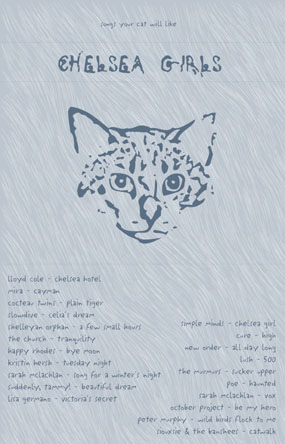 songs your cat will like
CHELSEA GIRLS
lloyd cole - chelsea hotel
mira - cayman
cocteau twins - plain tiger
slowdive - celia's dream
shelleyan orphan - a few small hours
the church - tranquility
happy rhodes - bye moon
kristin hersh - tuesday night
sarah mclachlan - song for a winter's night
suddenly, tammy! - beautiful dream
lisa germano - victoria's secret
simple minds - chelsea girl
cure - high
new order - all day long
lush - 500
the murmurs - sucker upper
poe - haunted
sarah mclachlan - vox
october project - be my hero
peter murphy - wild birds flock to me
siouxsie & the banshees - catwalk